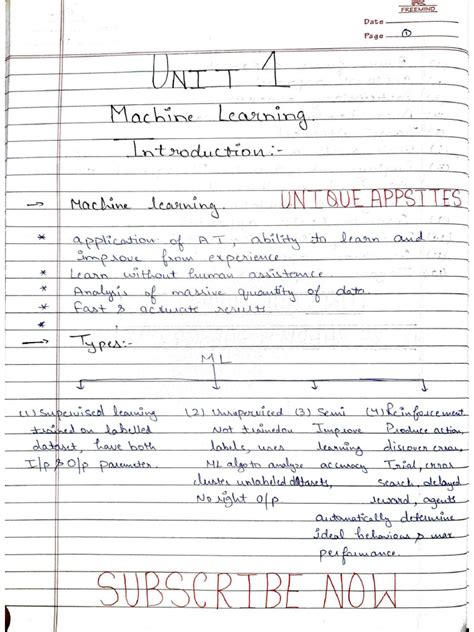 FREEMIND
Date
Page ①
UNIT 1
Machine Learning.
Introduction:-
→ Machine learning. UNIQUE APPSITES
* application of AI, ability to learn and
improve from experience.
* Learn without human assistance
* Analysis of massive quantity of data.
* Fast & accurate results
*
→ Types:-
ML
(1) Supervised learning
trained on labelled
dataset, have both
I/p & O/p parameter.
(2) Unsperviced
Not trained on
labels, uses
ML algo to analyze
cluster unlabeled datasets,
No right O/p
(3) Semi
Improve
learning
accuracy
(4) Reinforcement
Produce action,
discover error.
Trial, error
search, delayed
reward, agents
automatically determine
ideal behaviour & max
performance.
SUBSCRIBE NOW